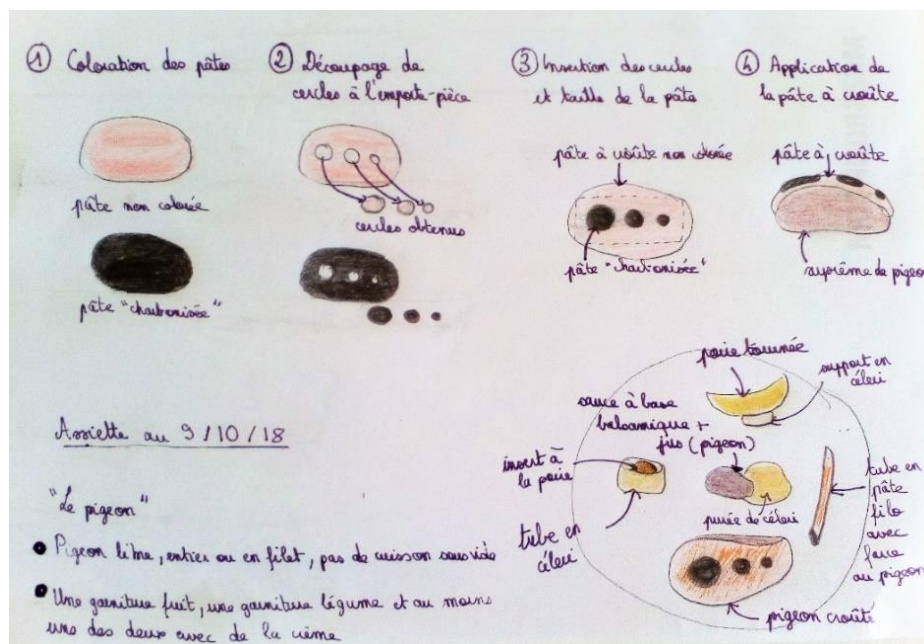 ① Coloration des pâtes
pâte non colorée
pâte "charbonisée"
② Découpage de
cercles à l'emporte-pièce
cercles obtenus
③ Insertion des cercles
et taille de la pâte
pâte à croûte non colorée
pâte "charbonisée"
④ Application de
la pâte à croûte
pâte à croûte
suprême de pigeon
Assiette au 9/10/18
"Le pigeon"
• Pigeon libre, entier ou en filet, pas de cuisson sous vide
• Une garniture fruit, une garniture légume et au moins
une des deux avec de la crème
poire tournée
support en
céleri
sauce à base
balsamique +
jus (pigeon)
insert à
la poire
tube en
céleri
purée de céleri
tube en
pâte
filo
avec
farce
au pigeon
pigeon croûté